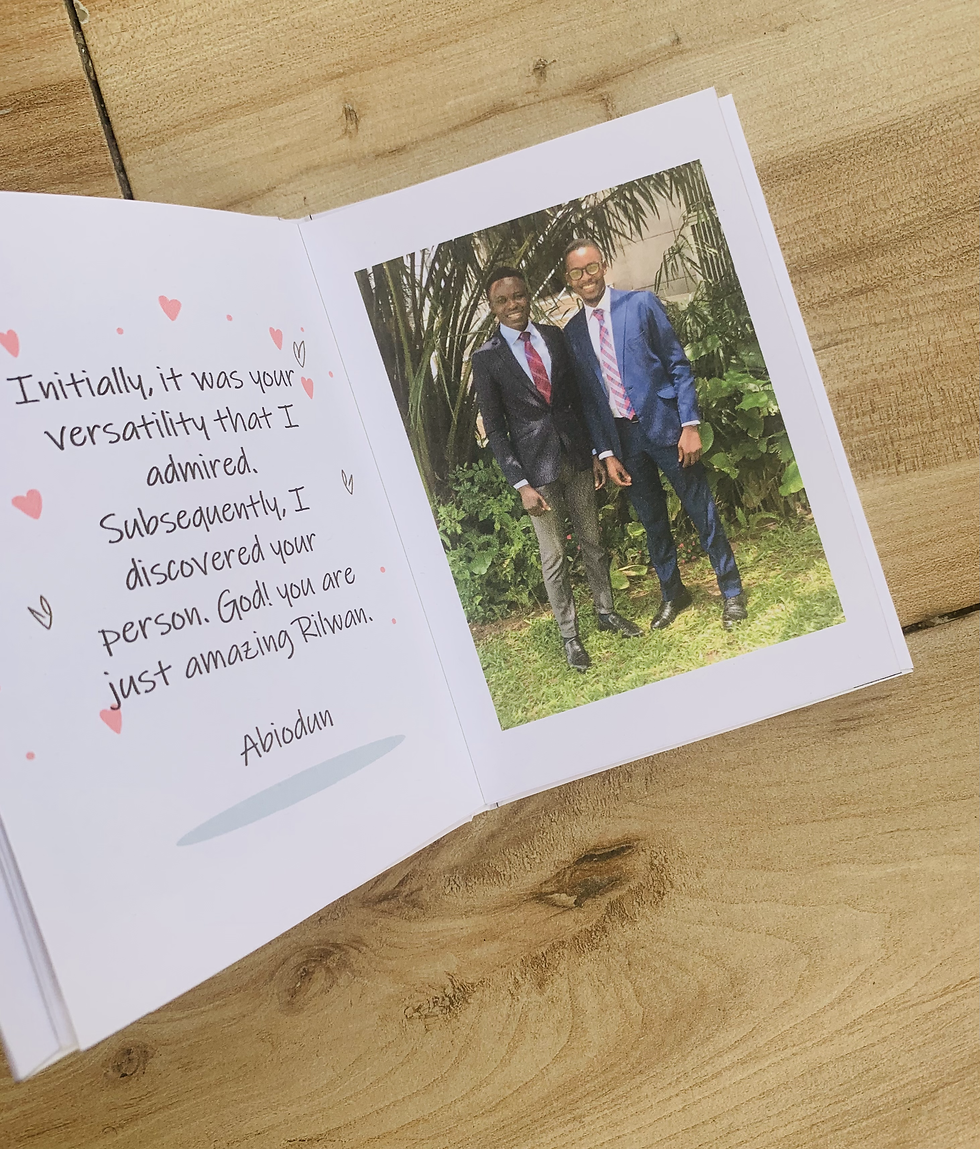 Initially, it was your
versatility that I
admired.
Subsequently, I
discovered your
person. God! you are
just amazing Rilwan.
Abiodun